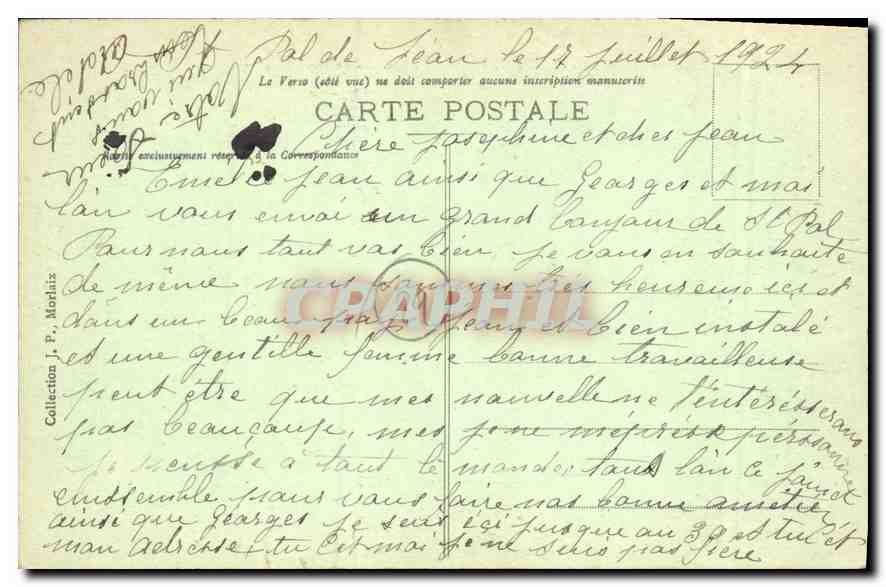 Pol de Jéan le 17 juillet 1924
Le Verso (côté vue) ne doit comporter aucune inscription manuscrite
CARTE POSTALE
Chère Josephine et cher Jean
exclusivement à la Correspondance
ce Jean ainsi que Georges et moi
l'on vous envoi un grand bonjour de St Pol
Pour nous tout vas bien je vous en souhaite
de même nous sommes très heureuse ici et
dans un beau pays Jean et bien instalé
et une gentille femme bonne travailleuse
peut être que mes nouvelle ne t'intéresserais
pas beaucoup, mes je ne méprise personne et
je pensse à tout le monde, tous l'on ce joint
enssemble pour vous faire nos bonne amitié
ainsi que Georges je suis ici jusque au 30 et tu cet
mon adresse, tu cet moi je ne suis pas fière
Votre
qui vous
Adèle
Collection J. P., Morlaix
CPAPHIL